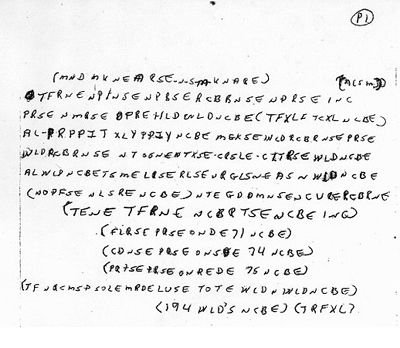 P1
(MND MKNEARSE-N-S-M-KNARE) (ACSM)
TFRNENPINSENPBSERCBRNSENPRSE INC
PRSENMRSE OPREHLDWLDNCBE (TFXLF TCXL NCBE)
AL-PRPPIT XLYPPIY NCBE MGKSE WLDRCBRNSEPRSE
WLDRCBRNSE NTSSNENTXSE-CRSLE-CITRSE WLDNCBE
ALWLPNCBE TSMELRSERLSEURGLSNEASN WLDNCBE
(NOPFSE NLSRE NCBE) NTEGDDMNSENCURERCBRNE
(TENE TFRNE NCBRTSENCBE ING)
(FLRSE PRSE ONDE 71 NCBE)
(CDNSE PRSE ONSDE 74 NCBE)
(PRTSE PRSE ONREDE 75 NCBE)
(TFNQCMSPSOLEMRDELUSE TOTE WLDN WLDNCBE)
(194 WLD'S NCBE) (TRFXL)